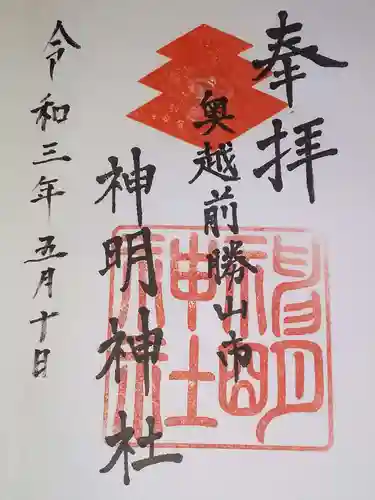 奉拝
奥越前勝山市
神明神社
令和三年五月十日
神明
神社